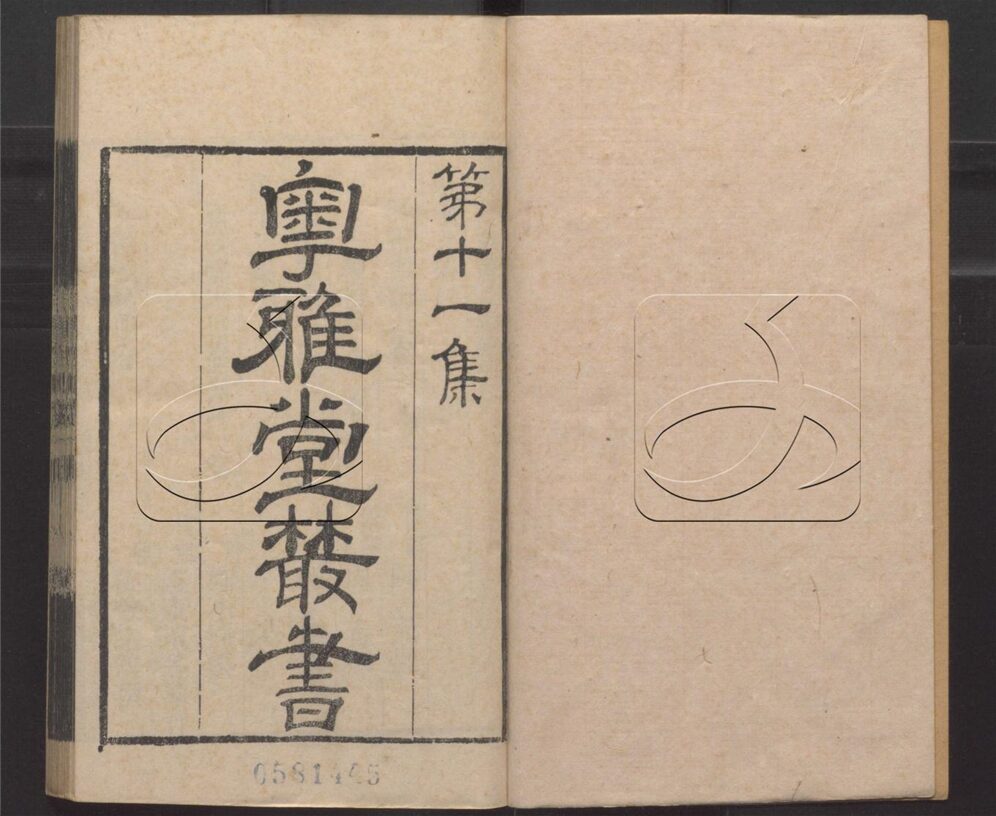 第十一集
粵雅堂叢書